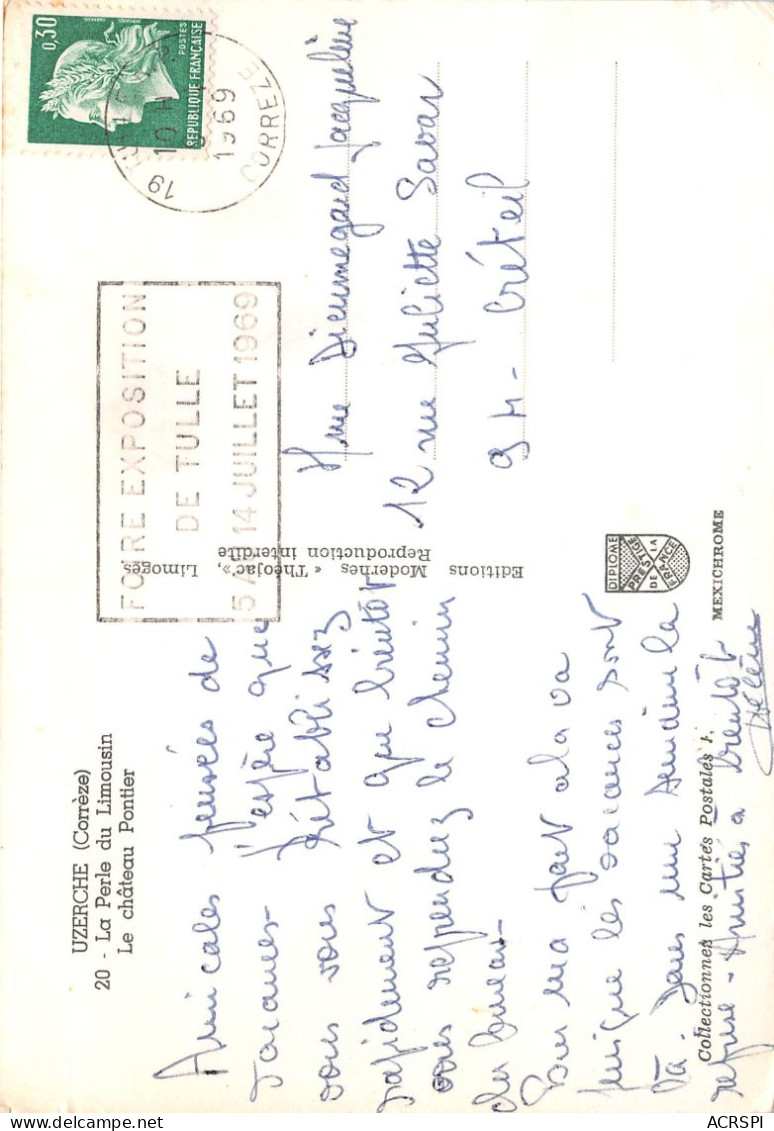 UZERCHE (Corrèze)
20 - La Perle du Limousin
Le château Pontier
Amicales pensées de
vacances - J'espère que
vous vous rétablissez
rapidement et que bientôt
vous reprendrez le chemin
du bureau -
Pour ma part cela va
puisque les vacances sont
là. Dans une semaine la
reprise - Amitiés a bientôt
Hélène
Collectionnez les Cartes Postales
Editions Modernes « Théojac », Limoges
Reproduction interdite
DIPLOME
PRESTIGE
DE LA
FRANCE
MEXICHROME
0,30
POSTES
REPUBLIQUE FRANÇAISE
19
10 H
1969
CORREZE
FOIRE EXPOSITION
DE TULLE
5 AU 14 JUILLET 1969
Mme Dieumegard Jacqueline
12 rue Juliette Savar
94 - Créteil
ACRSPI